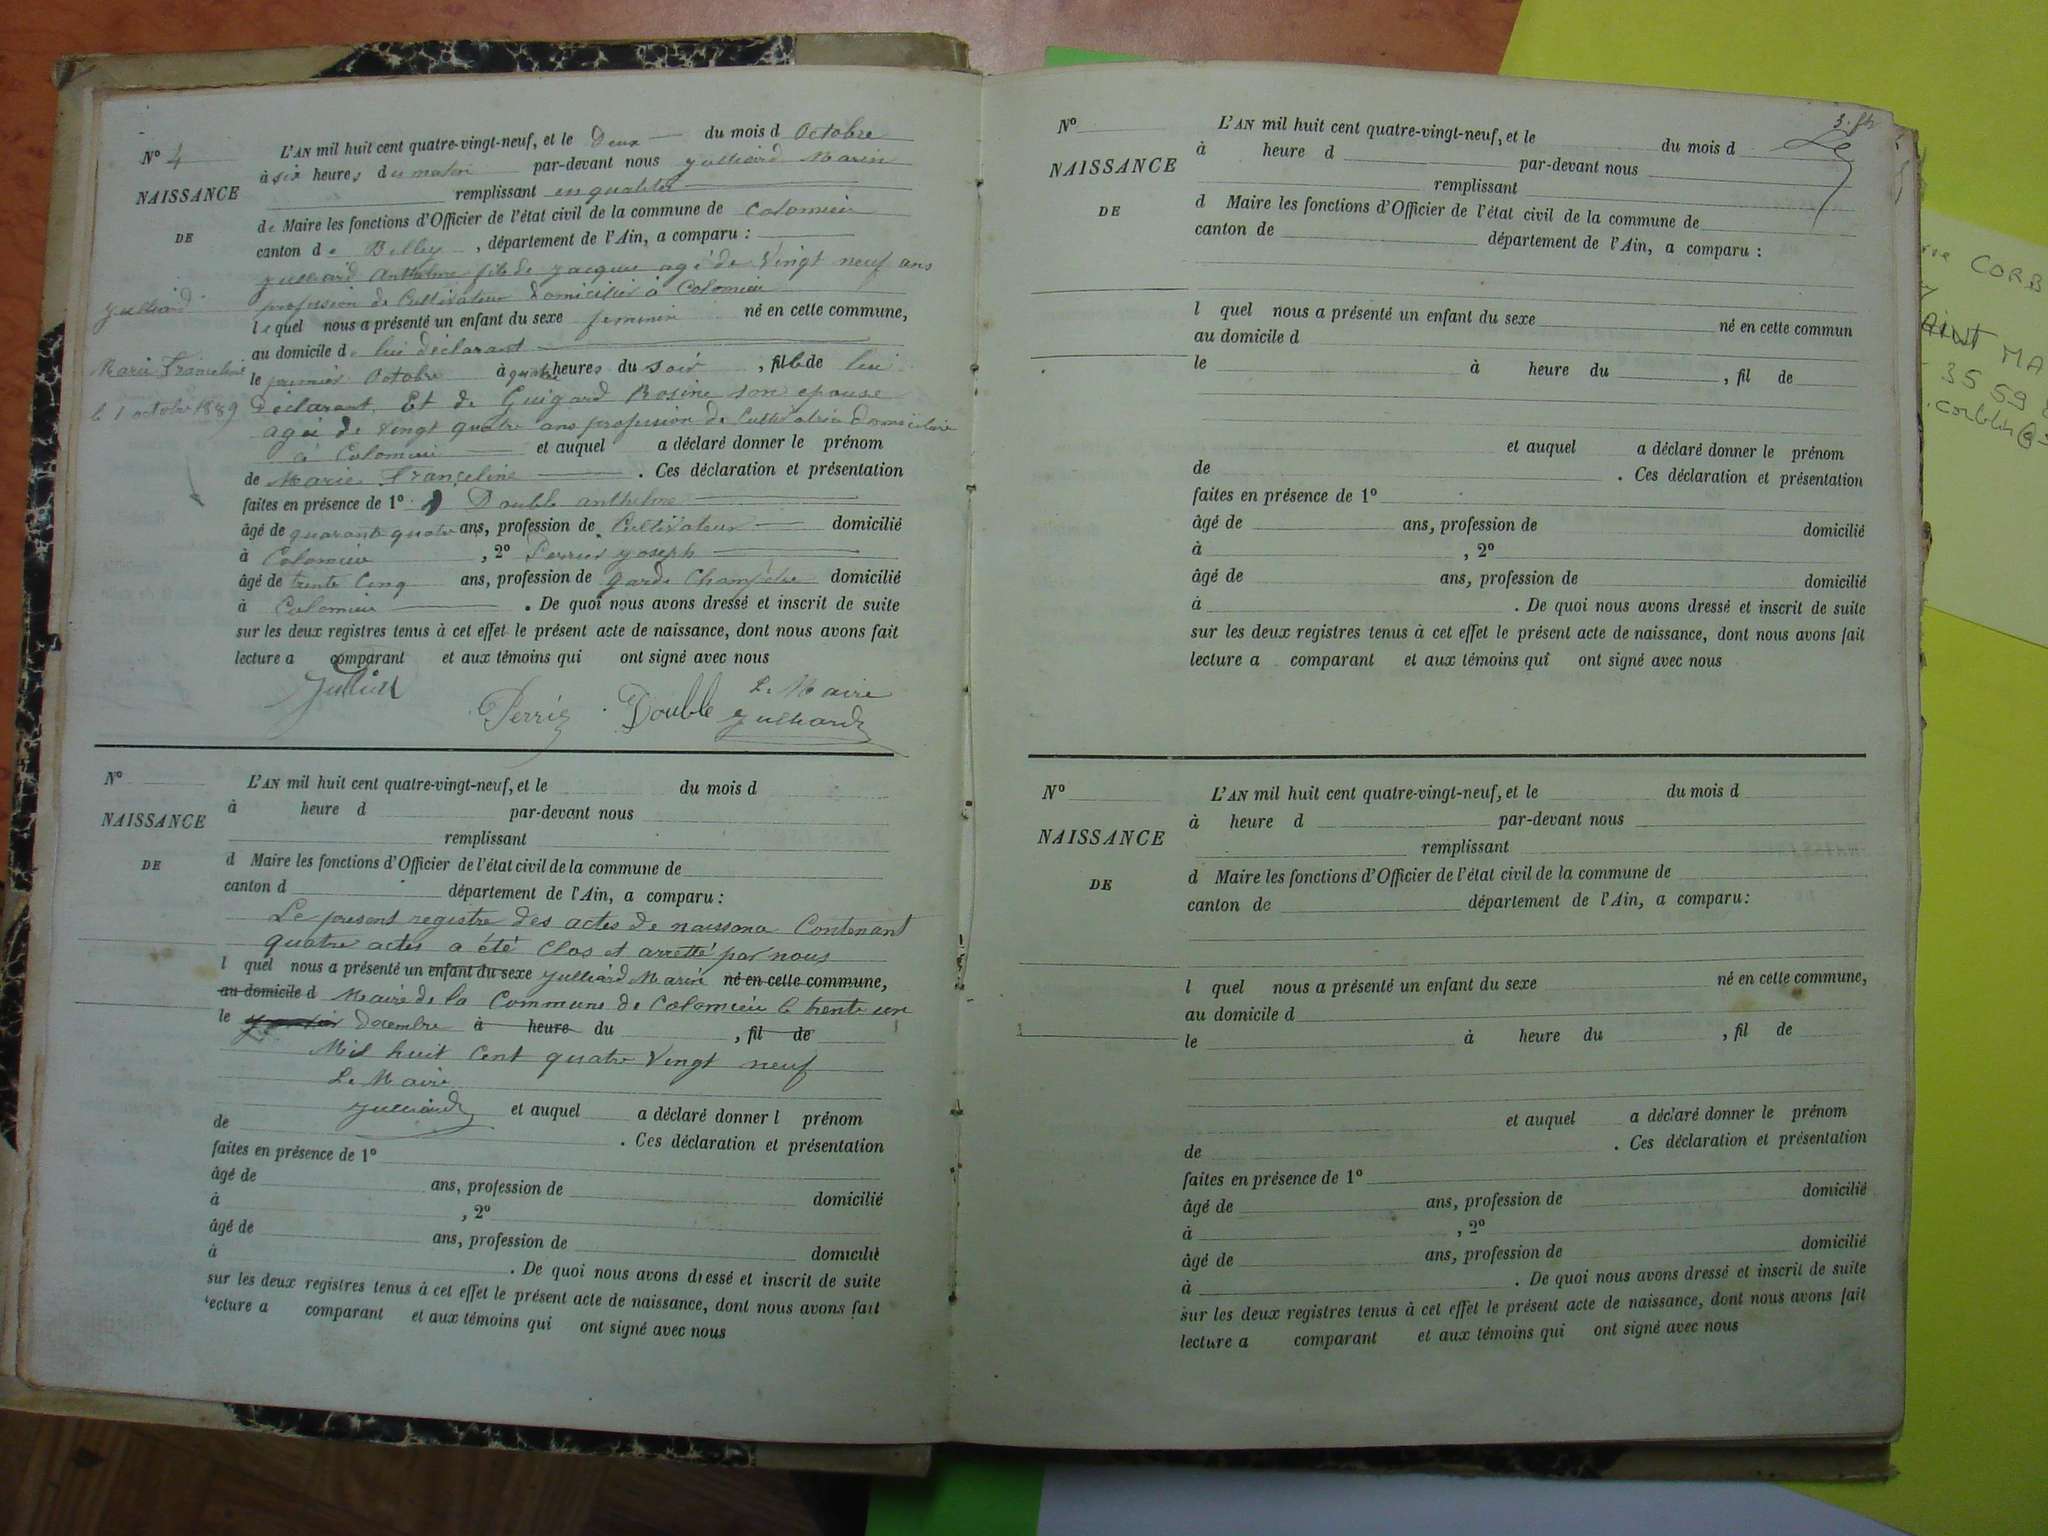 N° 4
NAISSANCE
DE
Julliard
Marie Franceline
le 1 octobre 1889
L'AN mil huit cent quatre-vingt-neuf, et le Deux du mois d Octobre
à six heures du matin par-devant nous Julliard Marin
remplissant en qualité
de Maire les fonctions d'Officier de l'état civil de la commune de Colomieu
canton de Belley, département de l'Ain, a comparu :
Julliard Anthelme fils de Jacques agé de Vingt neuf ans
profession de Cultivateur Domicilié à Colomieu
lequel nous a présenté un enfant du sexe feminin né en cette commune,
au domicile de lui déclarant
le premier Octobre à quatre heures du soir, fille de lui
Déclarant Et de Guigard Rosine son epouse
agée de vingt quatre ans profession de Cultivatrice Domiciliée
à Colomieu et auquel a déclaré donner le prénom
de Marie Franceline . Ces déclaration et présentation
faites en présence de 1° Double anthelme
âgé de quarante quatre ans, profession de Cultivateur domicilié
à Colomieu , 2° Perrier Joseph
âgé de trente Cinq ans, profession de garde Champêtre domicilié
à Colomieu . De quoi nous avons dressé et inscrit de suite
sur les deux registres tenus à cet effet le présent acte de naissance, dont nous avons fait
lecture a comparant et aux témoins qui ont signé avec nous
Le Maire
Perrier Double Julliard
N°
NAISSANCE
DE
L'AN mil huit cent quatre-vingt-neuf, et le du mois d
à heure d par-devant nous
remplissant
d Maire les fonctions d'Officier de l'état civil de la commune de
canton d département de l'Ain, a comparu :
Le present registre des actes de naissance Contenant
quatre actes a été Clos et arretté par nous
l quel nous a présenté un enfant du sexe Julliard Marin né en cette commune,
au domicile d Maire de la Commune de Colomieu le trente un
le decembre à heure du , fil de
Mil huit Cent quatre Vingt neuf
Le Maire
Julliard et auquel a déclaré donner l prénom
de . Ces déclaration et présentation
faites en présence de 1°
âgé de ans, profession de domicilié
à , 2°
âgé de ans, profession de domicilié
à . De quoi nous avons dressé et inscrit de suite
sur les deux registres tenus à cet effet le présent acte de naissance, dont nous avons fait
lecture a comparant et aux témoins qui ont signé avec nous
N°
NAISSANCE
DE
L'AN mil huit cent quatre-vingt-neuf, et le du mois d
à heure d par-devant nous
remplissant
d Maire les fonctions d'Officier de l'état civil de la commune de
canton de département de l'Ain, a comparu :
l quel nous a présenté un enfant du sexe né en cette commun
au domicile d
le à heure du , fil de
et auquel a déclaré donner le prénom
de . Ces déclaration et présentation
faites en présence de 1°
âgé de ans, profession de domicilié
à , 2°
âgé de ans, profession de domicilié
à . De quoi nous avons dressé et inscrit de suite
sur les deux registres tenus à cet effet le présent acte de naissance, dont nous avons fait
lecture a comparant et aux témoins qui ont signé avec nous
N°
NAISSANCE
DE
L'AN mil huit cent quatre-vingt-neuf, et le du mois d
à heure d par-devant nous
remplissant
d Maire les fonctions d'Officier de l'état civil de la commune de
canton de département de l'Ain, a comparu :
l quel nous a présenté un enfant du sexe né en cette commune,
au domicile d
le à heure du , fil de
et auquel a déclaré donner le prénom
de . Ces déclaration et présentation
faites en présence de 1°
âgé de ans, profession de domicilié
à , 2°
âgé de ans, profession de domicilié
à . De quoi nous avons dressé et inscrit de suite
sur les deux registres tenus à cet effet le présent acte de naissance, dont nous avons fait
lecture a comparant et aux témoins qui ont signé avec nous
CORB
MA
35 59